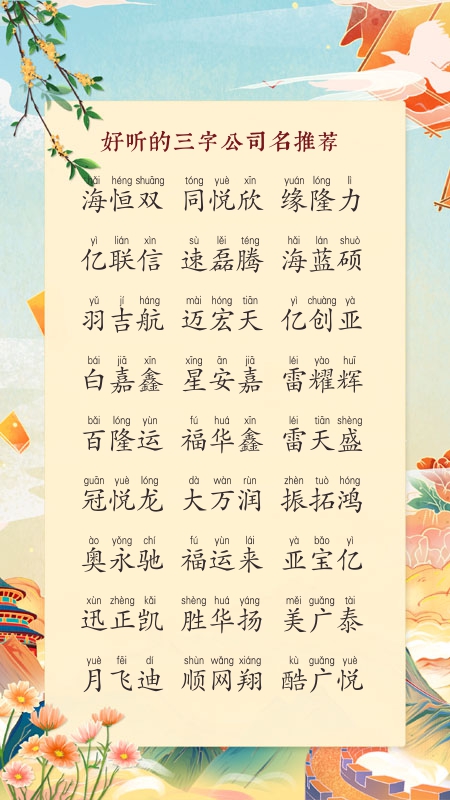 好听的三字公司名推荐
hǎi héng shuāng tóng yuè xīn yuán lóng lì
海恒双 同悦欣 缘隆力
yì lián xìn sù lěi téng hǎi lán shuò
亿联信 速磊腾 海蓝硕
yǔ jí háng mài hóng tiān yì chuàng yà
羽吉航 迈宏天 亿创亚
bái jiā xīn xīng ān jiā léi yào huī
白嘉鑫 星安嘉 雷耀辉
bǎi lóng yùn fú huá xīn léi tiān shèng
百隆运 福华鑫 雷天盛
guān yuè lóng dà wàn rùn zhèn tuò hóng
冠悦龙 大万润 振拓鸿
ào yǒng chí fú yùn lái yà bǎo yì
奥永驰 福运来 亚宝亿
xùn zhèng kǎi shèng huá yáng měi guǎng tài
迅正凯 胜华扬 美广泰
yuè fēi dí shùn wǎng xiáng kù guǎng yuè
月飞迪 顺网翔 酷广悦